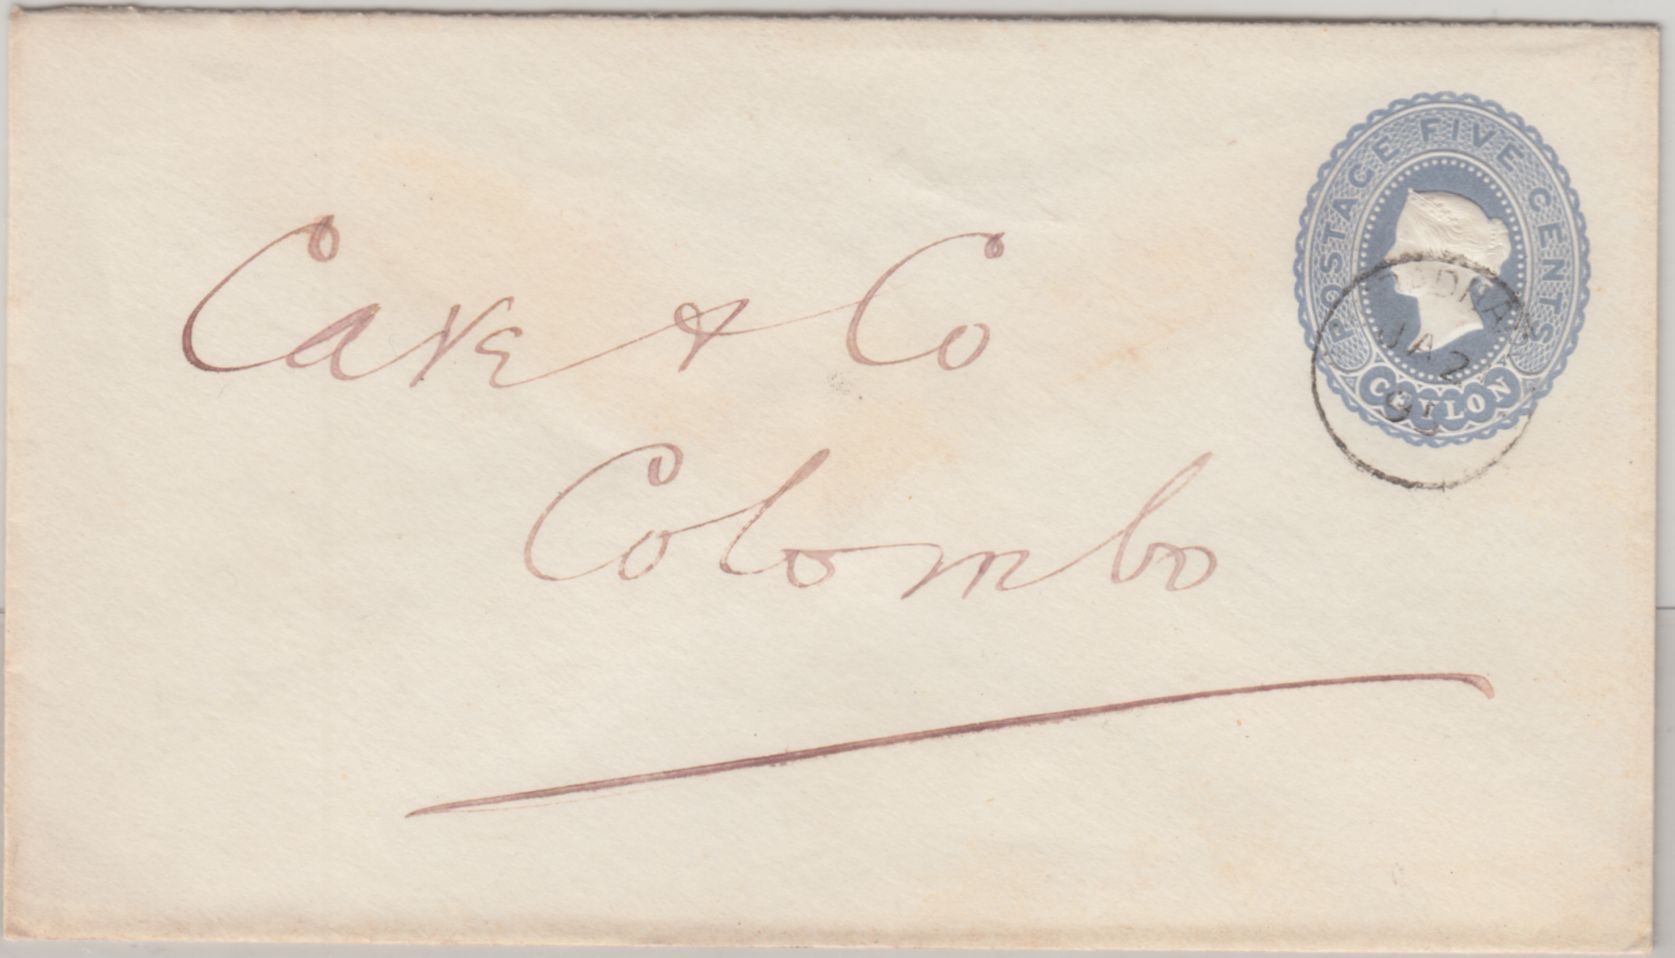 POSTAGE FIVE CENTS
CEYLON
JA 2
Cave & Co
Colombo